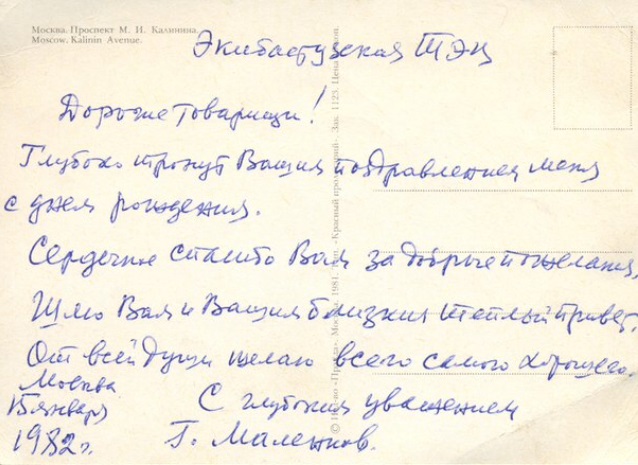 Москва. Проспект М. И. Калинина.
Moscow. Kalinin Avenue.
Экибастузская ТЭЦ
Дорогие товарищи!
Глубоко тронут Вашим поздравлением меня
с днем рождения.
Сердечное спасибо Вам за добрые пожелания.
Шлю Вам и Вашим близким теплый привет.
От всей души желаю всего самого хорошего.
Москва
15 января
1982 г.
С глубоким уважением
Г. Маленков.
«Правда» Москва 1981. «Красный пролетарий». Зак. 1123. Цена